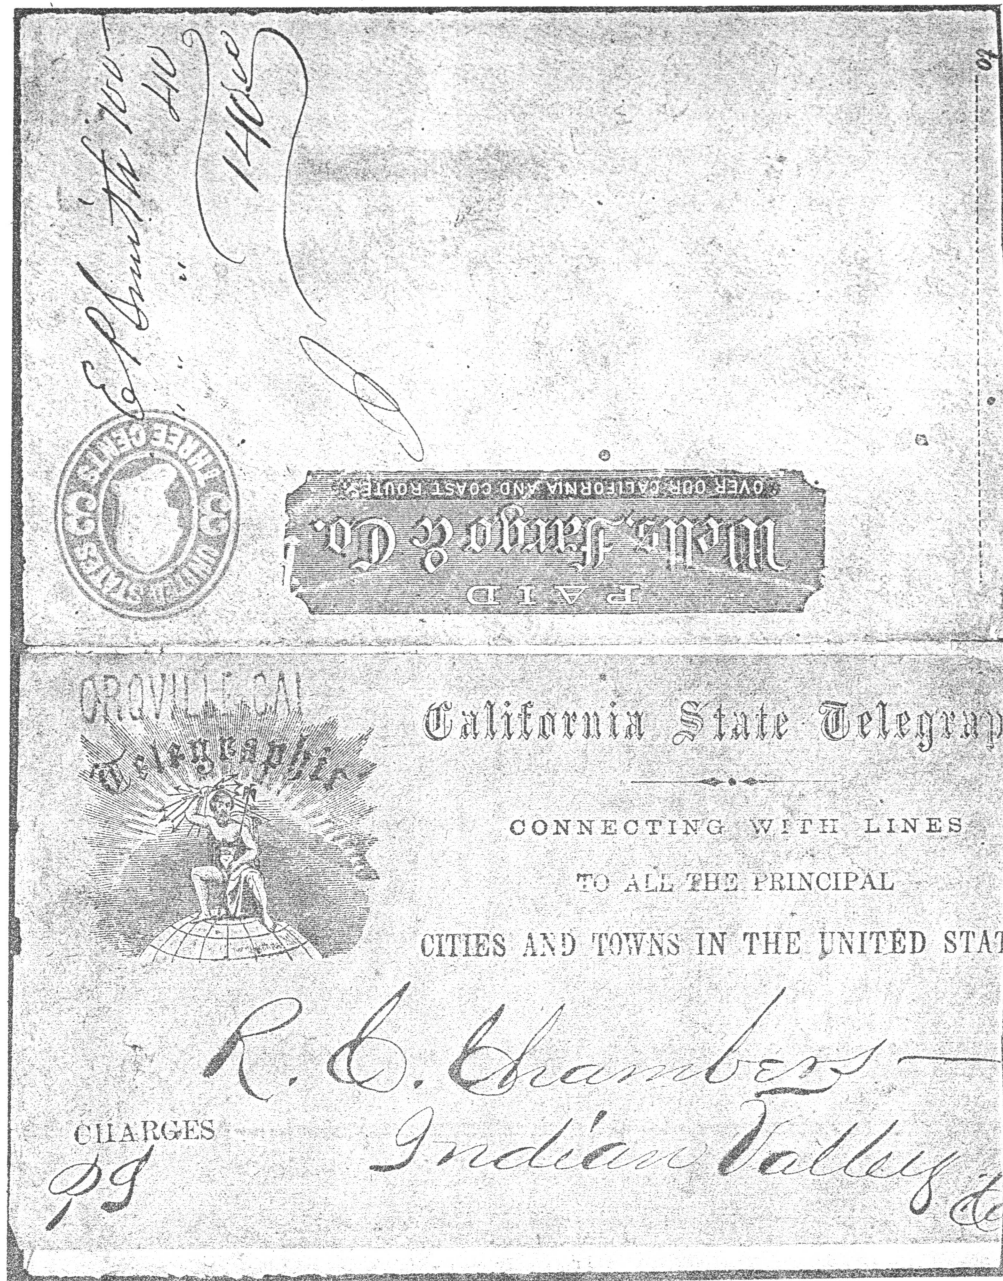 E P Smith 100
" " 40
140
to
UNITED STATES
THREE CENTS
3 3
PAID
Wells, Fargo & Co.
OVER OUR CALIFORNIA AND COAST ROUTES.
OROVILLE, CAL
Telegraphic
California State Telegrap
CONNECTING WITH LINES
TO ALL THE PRINCIPAL
CITIES AND TOWNS IN THE UNITED STAT
R. C. Chambers
CHARGES
Indian Valley